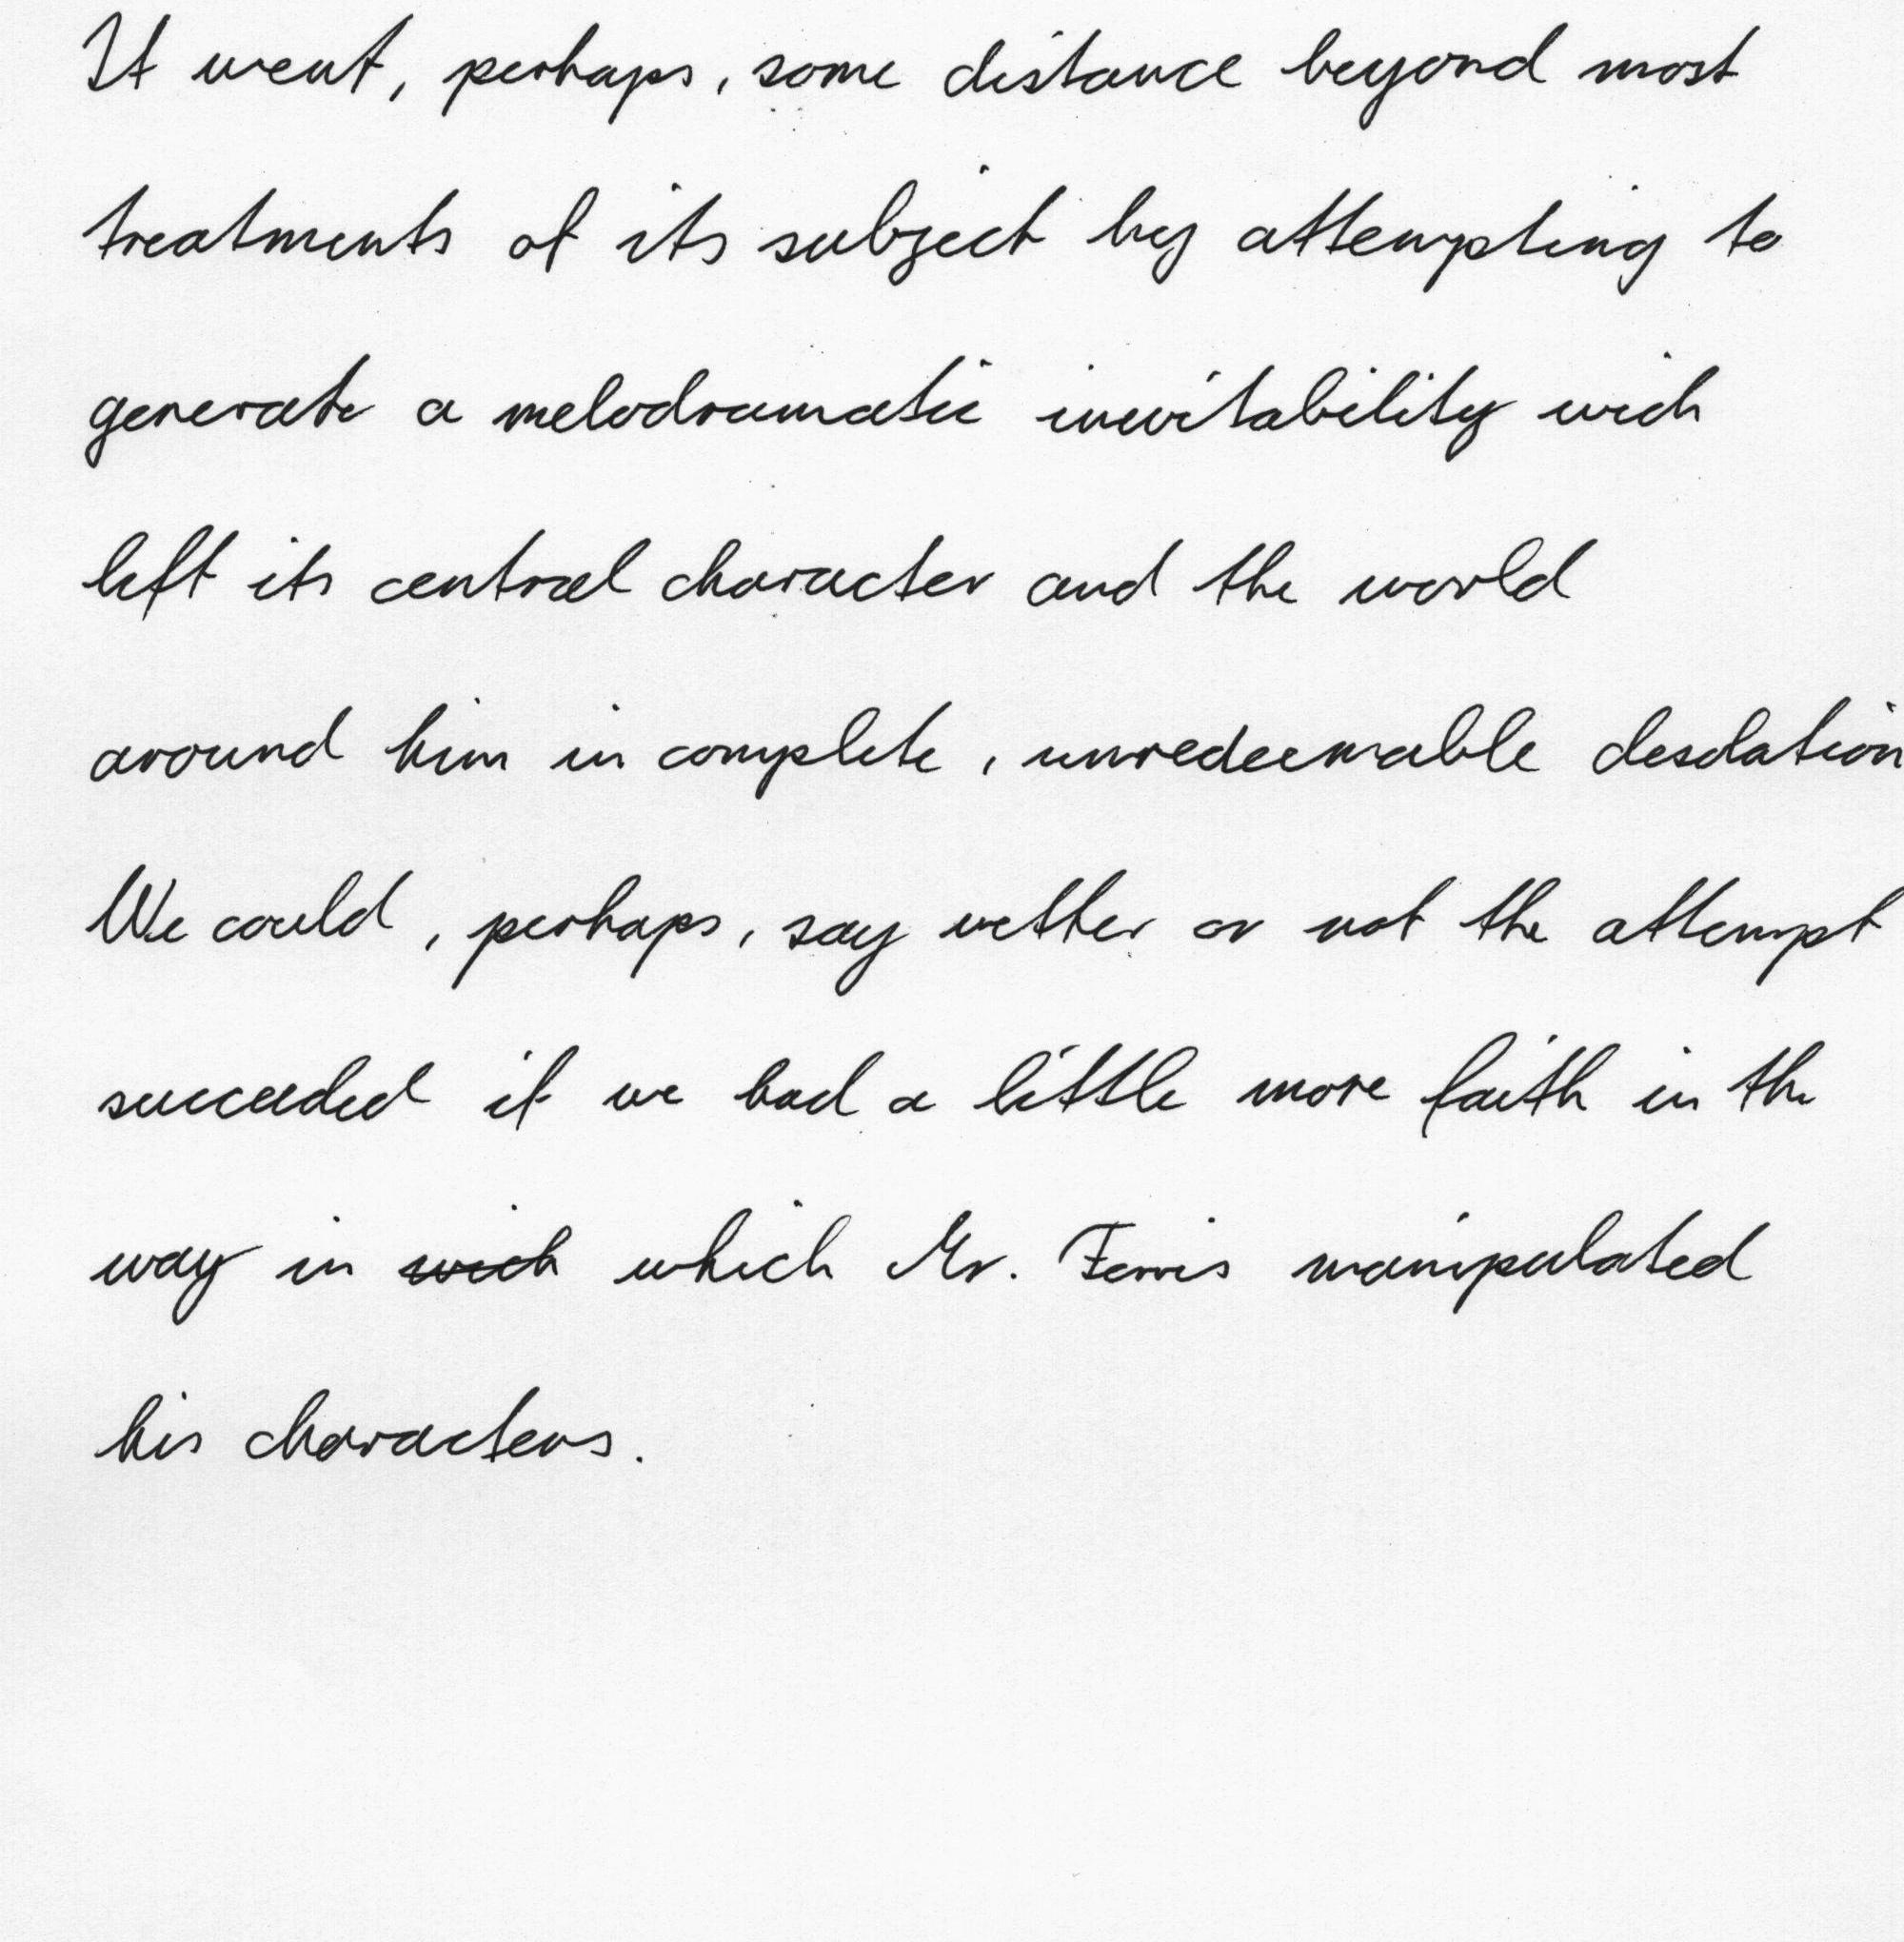 It went, perhaps, some distance beyond most
treatments of its subject by attempting to
generate a melodramatic inevitability wich
left its central character and the world
around him in complete, unredeemable desolation
We could, perhaps, say wether or not the attempt
succeeded if we had a little more faith in the
way in wich which Mr. Ferris manipulated
his characters.